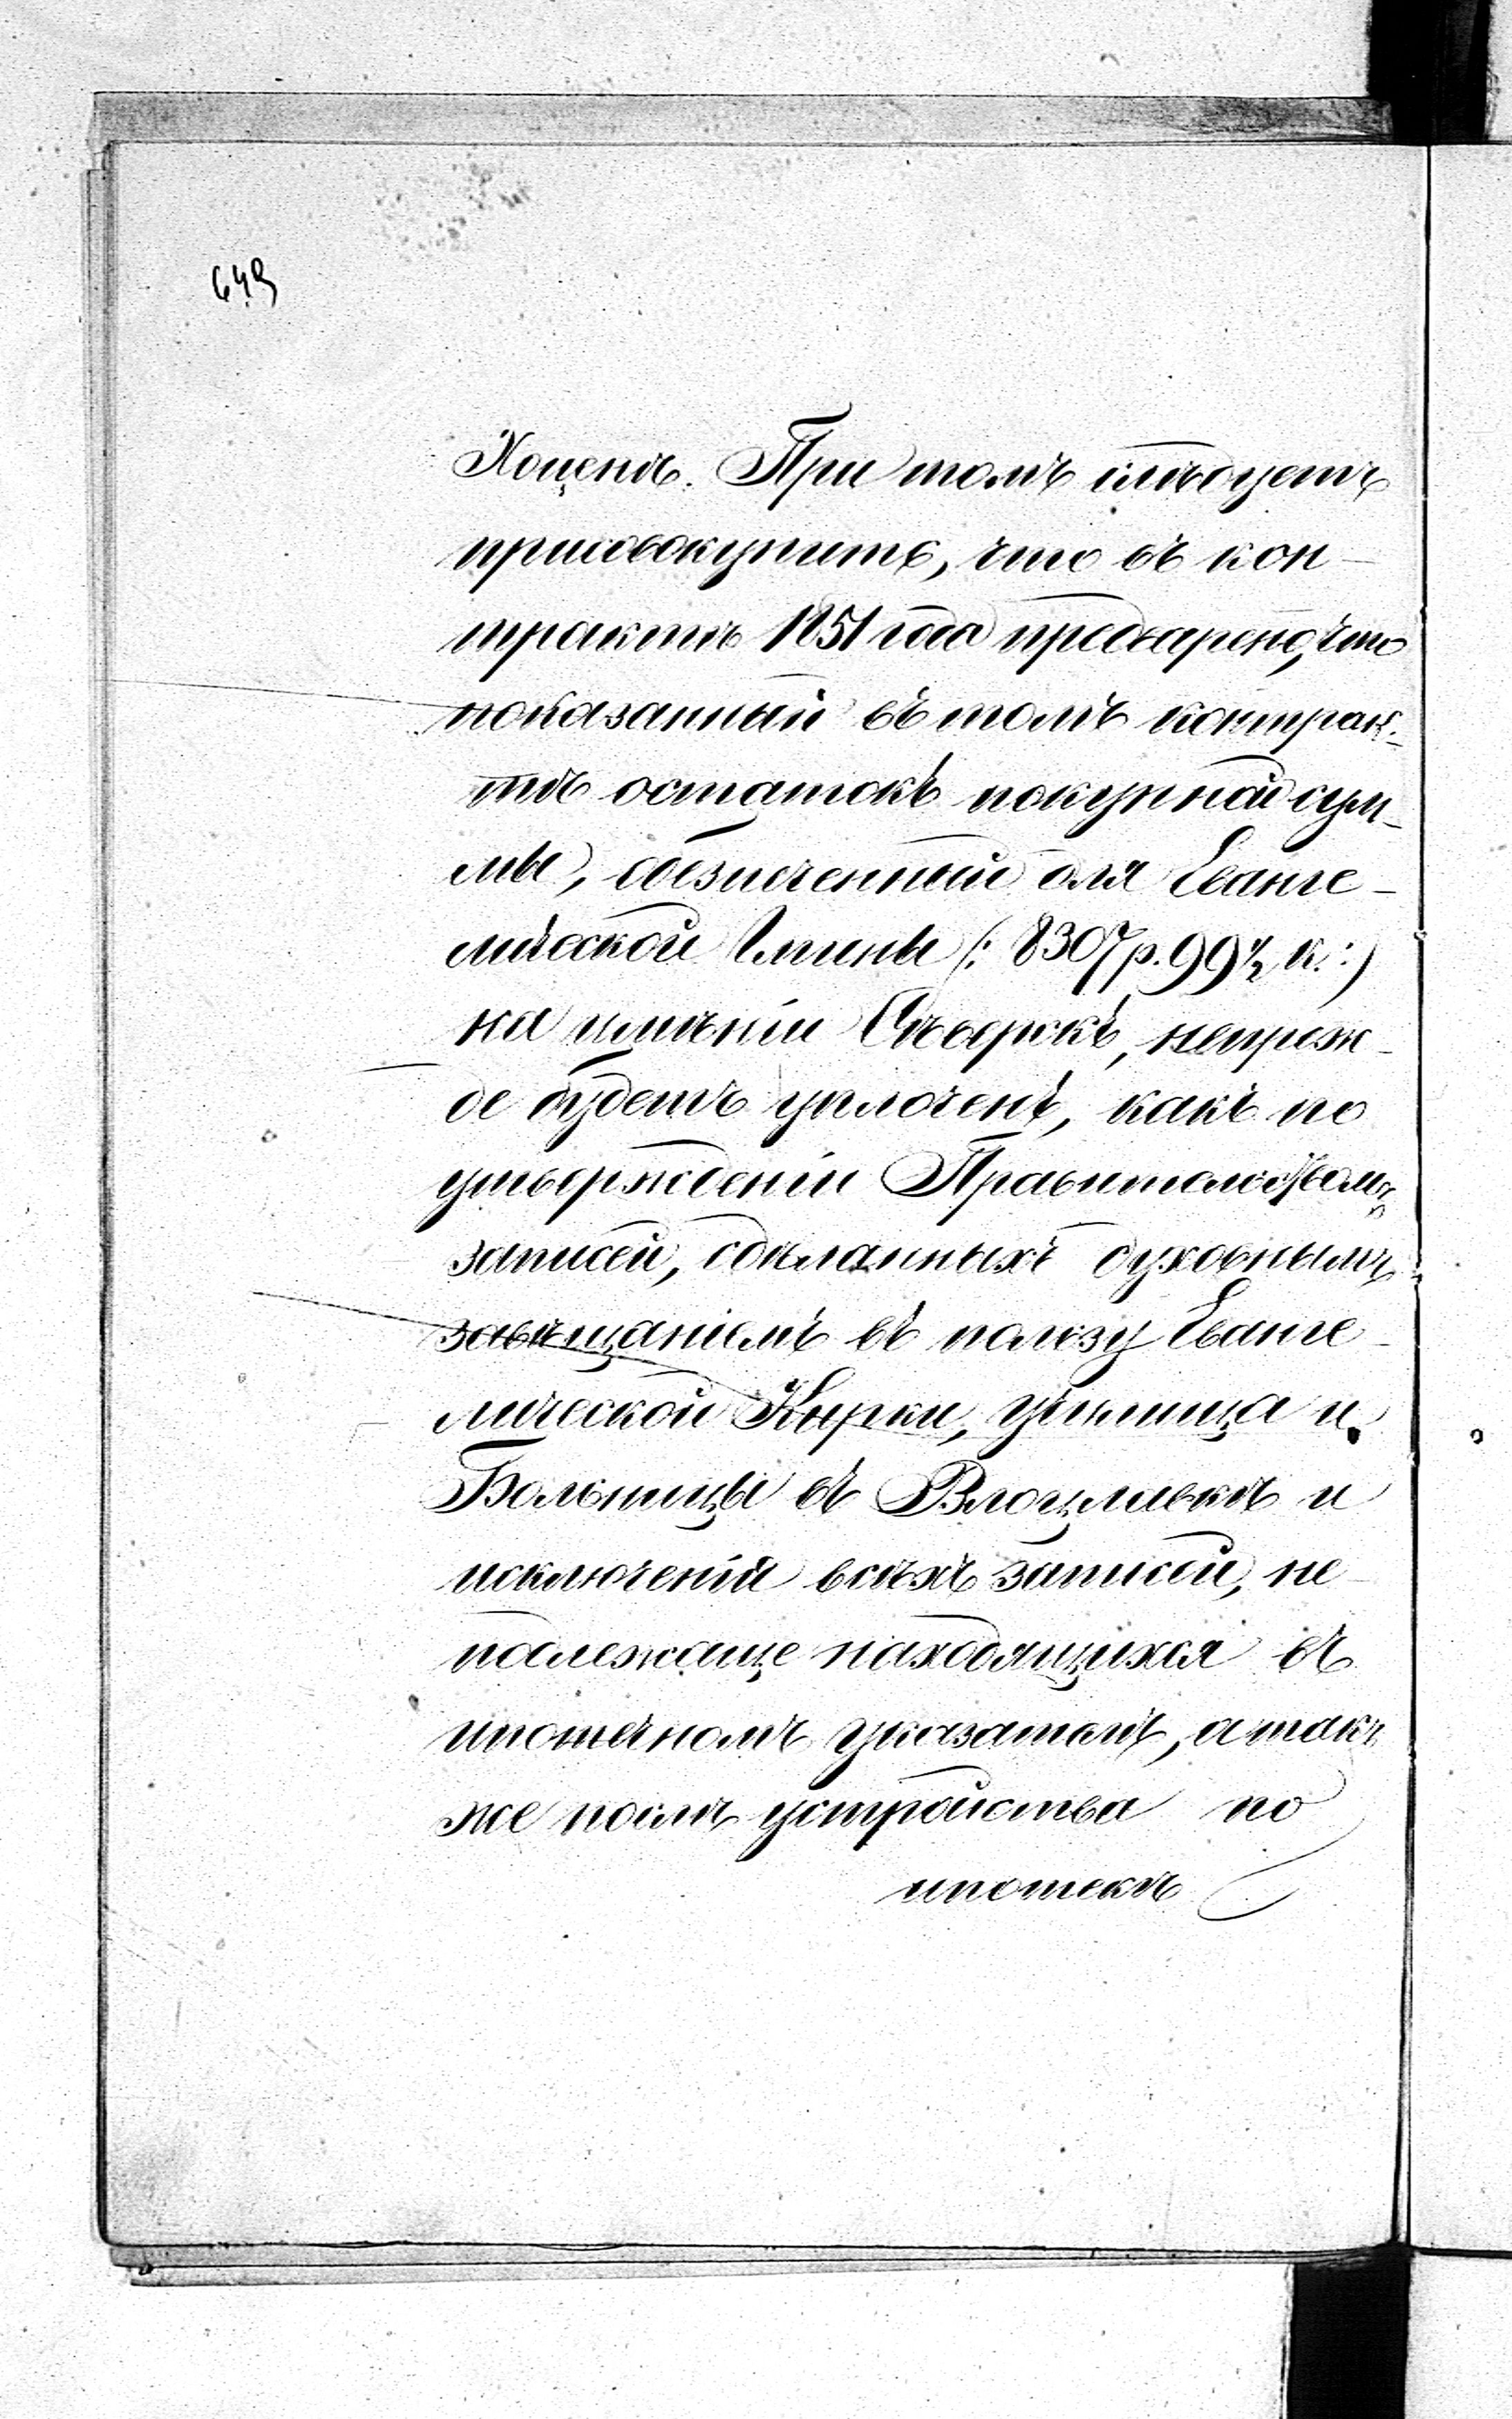 649
Хоценѣ. При томъ слѣдуетъ
присовокупить, что въ кон-
трактѣ 1851 года предварено, что
показанный въ томъ контрак-
тѣ остатокъ покупной сум-
мы, обезпеченный для Еванге-
лической Гмины (: 8307 р. 99½ к. :)
на имѣніи, непреж-
де будетъ уплоченъ, какъ по
утвержденіи Правительствомъ
записей, сдѣланныхъ духовнымъ
завѣщаніемъ въ пользу Еванге-
лической Кырки, училища и
Больницы въ Влоцлавкѣ и
исключеніи всѣхъ записей, не-
подлежаще находящихся въ
ипотечномъ указателѣ, а так-
же послѣ устройства по
ипотекѣ